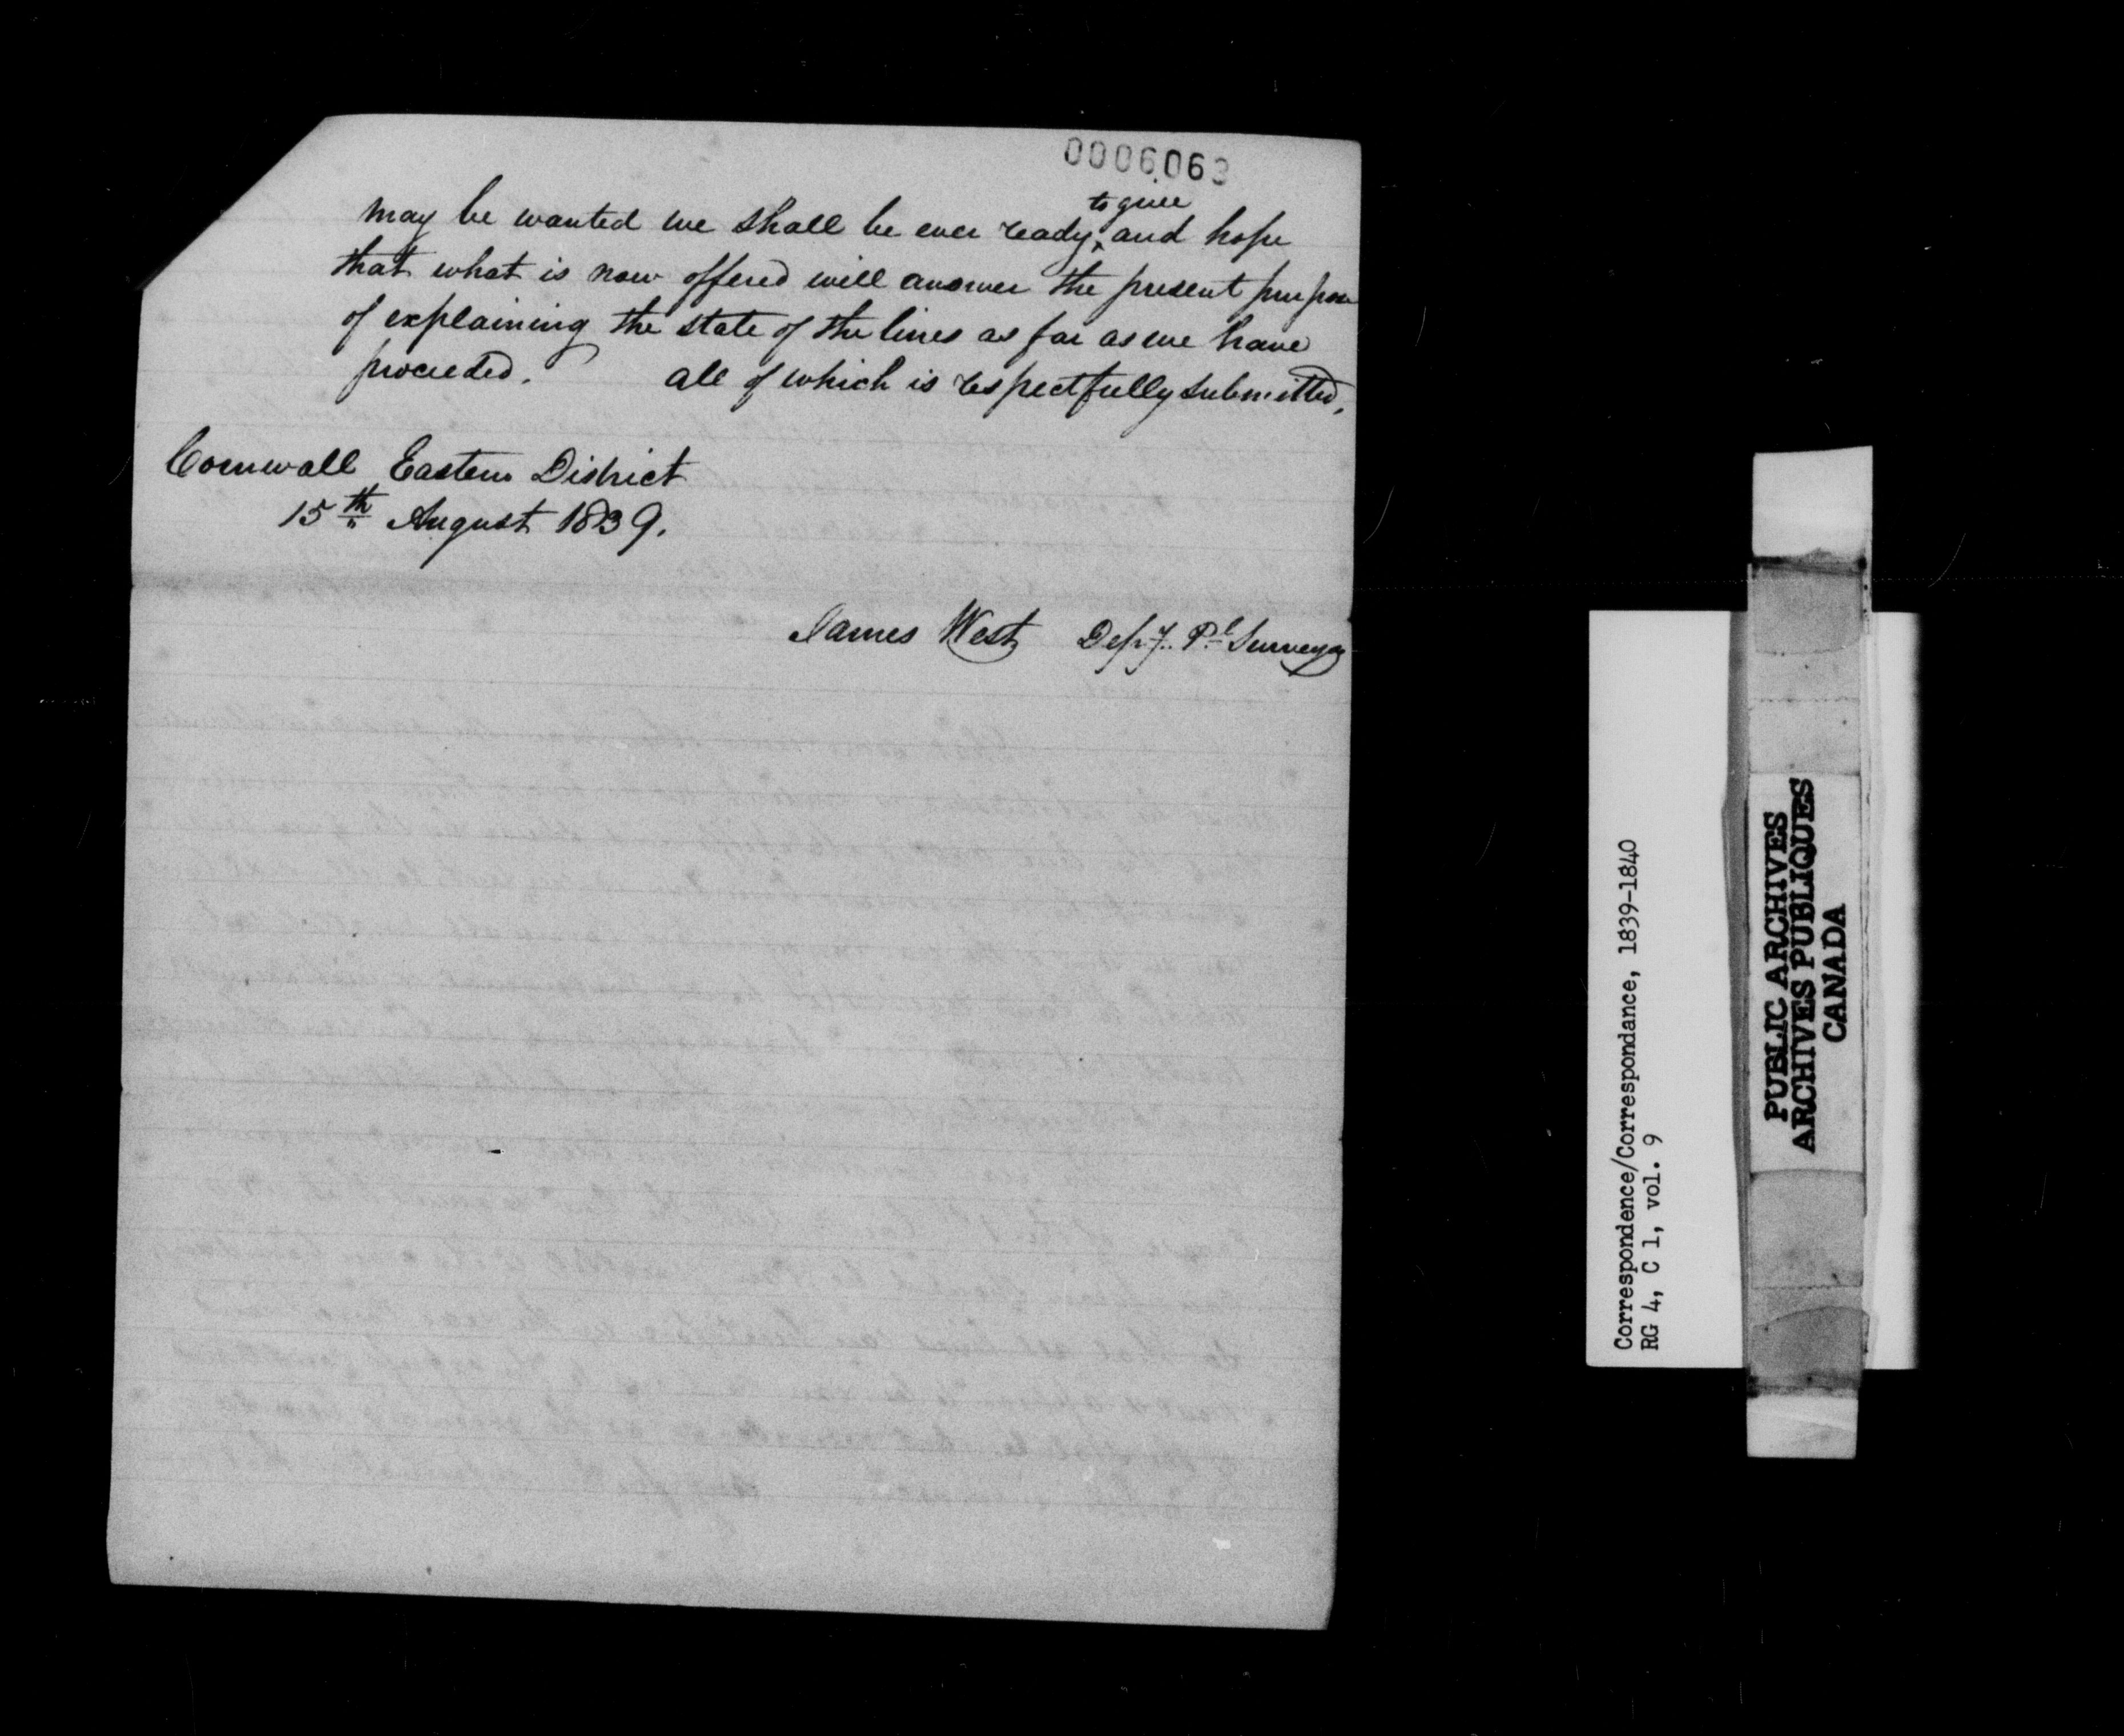 0006063
may be wanted we shall be ever ready, to give and hope
that what is now offered will answer the present purpose
of explaining the state of the lines as far as we have
proceeded. all of which is respectfully submitted.
Cornwall Eastern District
15th August 1839.
James West Depy. Pl Surveyor
Correspondence/Correspondance, 1839-1840
RG 4, C 1, vol. 9
PUBLIC ARCHIVES
ARCHIVES PUBLIQUES
CANADA